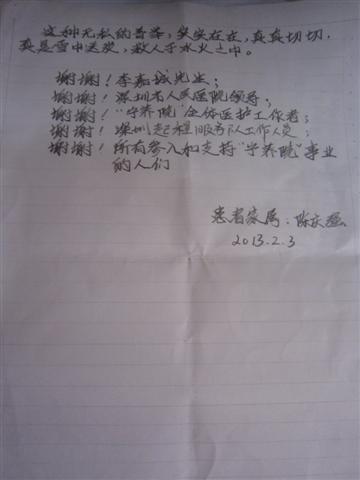 这种无私的善举，实实在在，真真切切，
真是雪中送炭，救人于水火之中。
谢谢！李嘉诚先生；
谢谢！深圳市人民医院领导；
谢谢！"宁养院"全体医护工作者；
谢谢！深圳起程服务队工作人员；
谢谢！所有参入和支持"宁养院"事业
的人们
患者家属：陈庆
2013.2.3